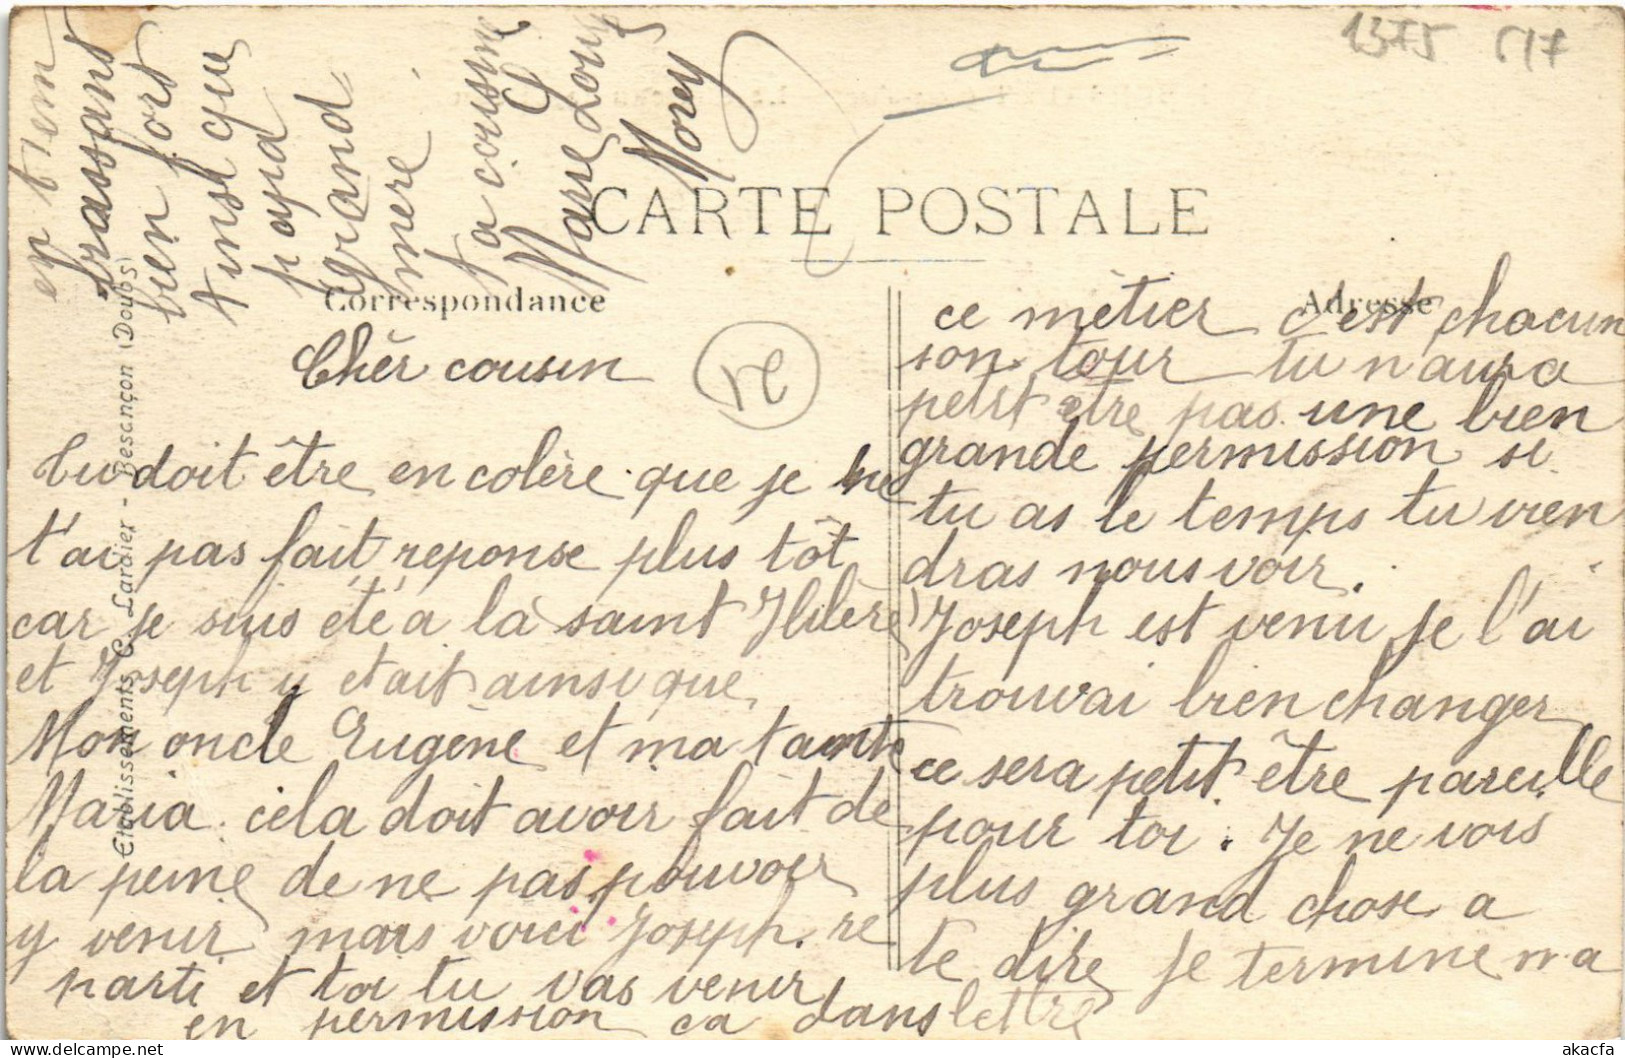 1375 617
CARTE POSTALE
Correspondance
Adresse
Etablissements C. Lardier - Besançon (Doubs)
re
Chèr cousin
Tu doit être en colère que je ne
t'ai pas fait reponse plus tôt
car je suis été a là saint Hilère
et Joseph y etait ainsi que
Mon oncle Eugène et ma tante
Maria cela doit avoir fait de
la peine de ne pas pouvoir
y venir mais voici Joseph re
parti et toi tu vas venir
en permission ca dans
ce mètier c'est chacun
son tour tu n'aura
petit être pas une bien
grande permission si
tu as le temps tu vien
dras nous voir.
Joseph est venu je l'ai
trouvai bien changer
ce sera petit être pareille
pour toi. Je ne vois
plus grand chose a
te dire je termine ma
lettre
en t'em
brassant
bien fort
Ainsi que
papa
grand
mère.
Ta cousine
Marie Louise
Morey
akacfa